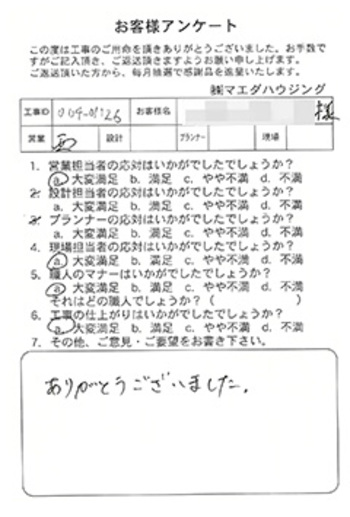 お客様アンケート
この度は工事のご用命を頂きありがとうございました。お手数で
すがご記入頂き、ご返送頂きますようお願い申し上げます。
ご返送頂いた方から、毎月抽選で感謝品を進呈いたします。
㈱マエダハウジング
工事ID お客様名 様
営業 設計 プランナー 現場
1. 営業担当者の応対はいかがでしたでしょうか？
a. 大変満足 b. 満足 c. やや不満 d. 不満
2. 設計担当者の応対はいかがでしたでしょうか？
a. 大変満足 b. 満足 c. やや不満 d. 不満
3. プランナーの応対はいかがでしたでしょうか？
a. 大変満足 b. 満足 c. やや不満 d. 不満
4. 現場担当者の応対はいかがでしたでしょうか？
a. 大変満足 b. 満足 c. やや不満 d. 不満
5. 職人のマナーはいかがでしたでしょうか？
a. 大変満足 b. 満足 c. やや不満 d. 不満
それはどの職人でしょうか？（ ）
6. 工事の仕上がりはいかがでしたでしょうか？
a. 大変満足 b. 満足 c. やや不満 d. 不満
7. その他、ご意見・ご要望をお書き下さい。
ありがとうございました。